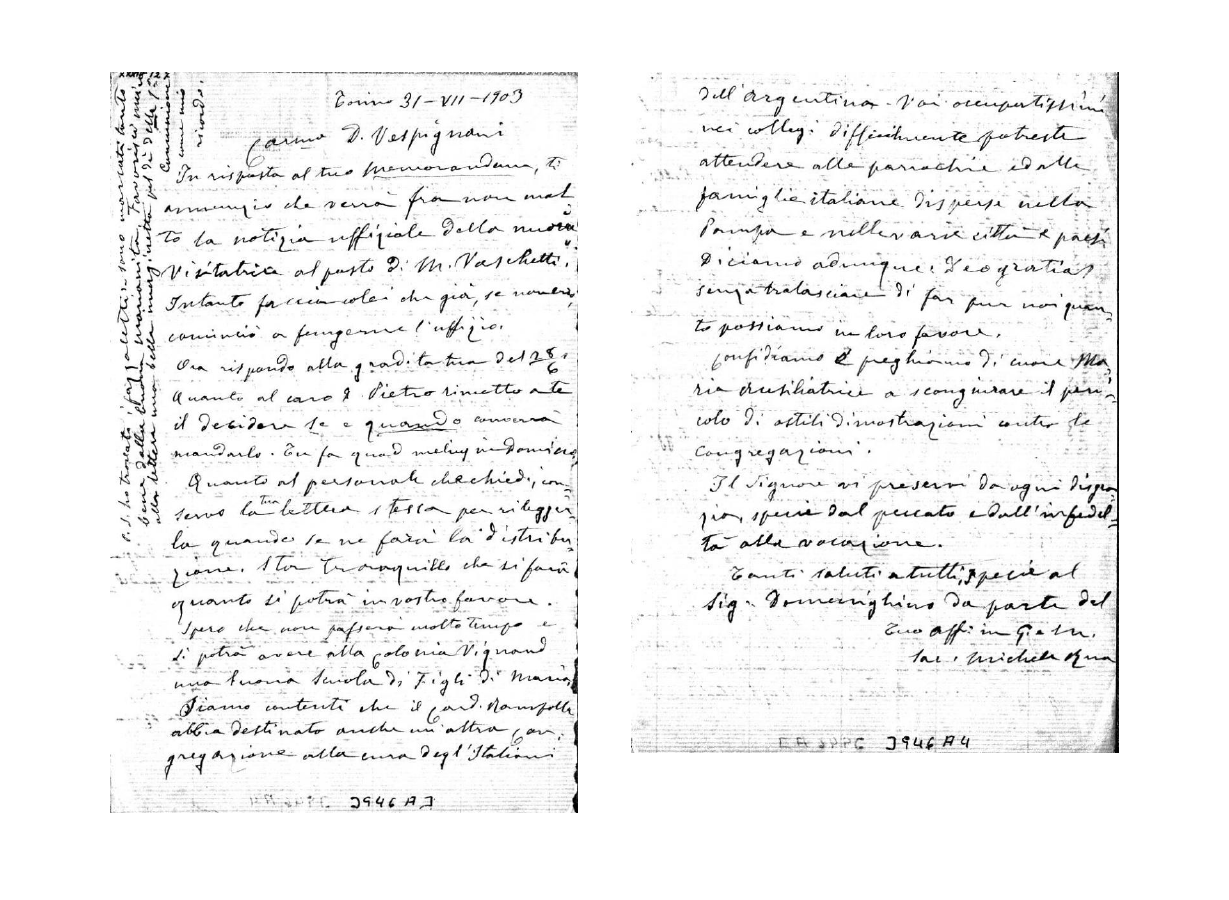 Torino 31-VII-1903
Carmo D. Vespignani
In risposta al tuo memorandum, ti
annunzio che verrà fra non mol
to la notizia uffiziale della nuova
Visitatrice al posto di M. Vaschetti.
Intanto faccia colei che già, se non erro,
cominciò a fungerne l'uffizio.
Ora rispondo alla gradita tua del 28/6.
Quanto al caro D. Pietro rimetto a te
il decidere se e quando converrà
mandarlo. Tu fa quod melius in Domino
Quanto al personale che chiedi, con,
servo la tua lettera stessa per rilegger,
la quando se ne farà la distribu,
zione. Sta tranquillo che si farà
quanto si potrà in vostro favore.
Spero che non passerà molto tempo e
si potrà avere alla Colonia Vignaud
una buona Scuola di Figli di Maria,
Siamo contenti che il Card. Rampolla
abbia destinato anche un'altra Con,
gregazione alla cura degl'Italiani
J946A3
P. S. ho trovati i pezzi elettri. sono marcati tanto
bene dalla buona
alla lettera una bella
pel dì della 1ª
Comunione
come mio
ricordo.
dell'Argentina. Voi occupatissimi
nei collegi difficilmente potreste
attendere alle parrochie ed alle
famiglie italiane disperse nella
Pampa e nelle varie città e paesi
Diciamo adunque: Deo gratias
senza tralasciare di far pur noi quan,
to possiamo in loro favore.
Confidiamo e preghiamo di cuore Ma,
ria Ausiliatrice a scongiurare il peri,
colo di ostili dimostrazioni contro le
Congregazioni.
Il Signore vi preservi da ogni disgra
zia, specie dal peccato e dall'infedel,
tà alla vocazione.
Tanti saluti a tutti, specie al
Sig. Domenighino da parte del
Tuo aff. in G. e M.
Sac. Michele Rua
J946A4